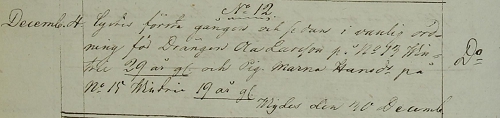 No 12.
Decemb. 4. Lystes första gången och sedan i vanlig ord-
ning för Drängen Ola Larsson på No 13 Win-
trie 29 år gl. och Pig. Marna Hansdr på
No 15 Windrie 19 år gl. Do
Wigdes den 30 Decembr